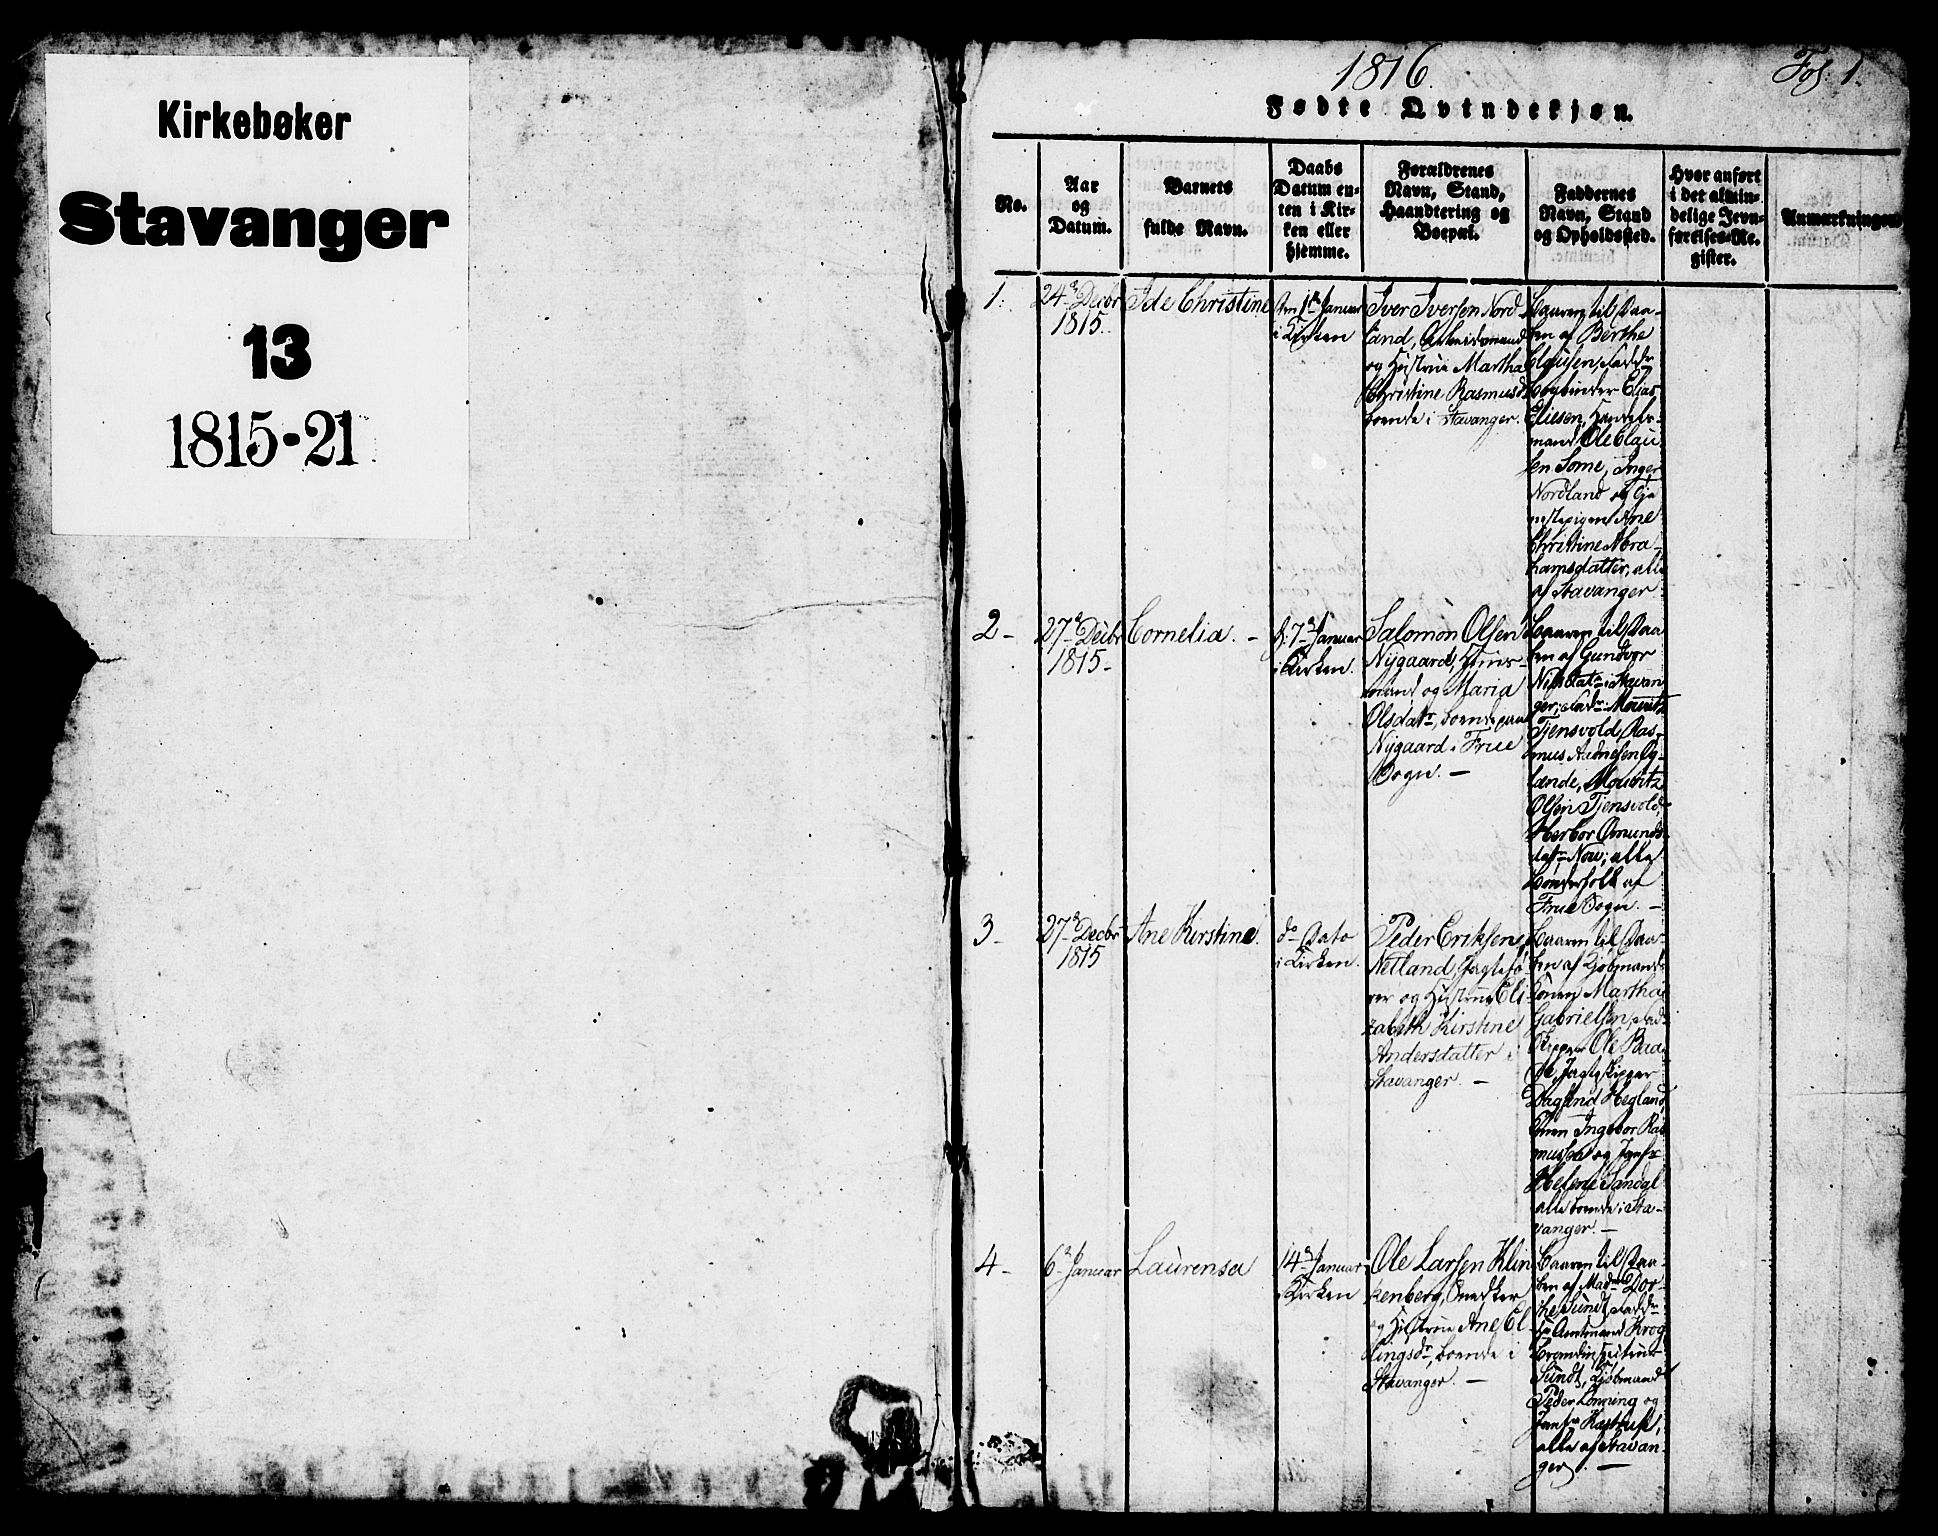 Kirkebøker
Stavanger
13
1815-21
1816.
Fol. 1.
Fødte Qvindekjøn.
No.
Aar
og
Datum.
Barnets
fulde Navn.
Daabs
Datum en-
ten i Kir-
ken eller
hjemme.
Forældrenes
Navn, Stand,
Haandtering og
Boepæl.
Faddernes
Navn, Stand
og Opholdssted.
Hvor anført
i det almin-
delige Jevn-
førelses-Re-
gister.
Anmærkninger
1.
24de Decbr
1815.
Ide Christine
Den 1ste Januar
i Kirken
Iver Iversen Nord
land, Arbeidsmand
og Hustrue Martha
Christine Rasmusd
boende i Stavanger.
Baaren til Daa-
ben af Berthe
Clausen, Fadde
Bogbinder Elias
Eliesen,
mand Ole Clau
sen Some, Inger
Nordland og Tje
nestepigen Ane
Christine Abra-
hamsdatter, alle
af Stavanger
2-
27de Decbr
1815-
Cornelia. -
d. 7de Januar
i Kirken.
Salomon Olsen
Nygaard, Huus-
mand og Maria
Olsdatr, boende paa
Nygaard i Frue
Sogn. -
Baaren til Daa
ben af Gundvor
Nilsdatr i Stavan
ger, Fadr: Mouritz
Tjensvold, Ras-
mus Aadnesen Og-
lænde, Mouritz
Olsen Tjensvold
Herbor Omunds-
datr alle
Bønderfolk af
Frue Sogn. -
3-
27de Decbr
1815
Ane Kirstine.
do Dato
i Kirken.
Peder Eriksen
Netland, Jagtefø-
rer og Hustrue Eli-
zabeth Kirstine
Andersdatter i
Stavanger. -
Baaren til Daa-
ben af Kjøbmands
konen Martha
Gabrielsen, Fad-
Skipper Ole Baa-
de, Jagtskipper
Daglund Hegland,
Konen Ingebor Ras
mussen og Jomfr
Helene Sandal
alle boende i Sta-
vanger. -
4-
6de Januar
Laurensa
14de Januar
i Kirken
Ole Larsen Klin
kenberg, Snedker
og Hustrue Ane El-
lingsdr, boende i
Stavanger. -
Baaren til Daa-
ben af Madme Dor-
the Sundt, Faddr
Amtmand Krog
Sundt, Kjøbmand
Peder Lonning og
Jomfr Kastrup,
alle af Stavan-
ger. -